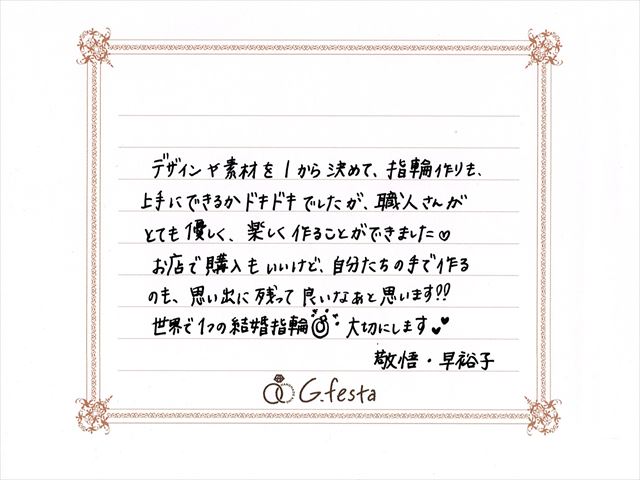 デザインや素材を1から決めて、指輪作りも、
上手にできるかドキドキでしたが、職人さんが
とても優しく、楽しく作ることができました♡
お店で購入もいいけど、自分たちの手で作る
のも、思い出に残って良いなぁと思います!!
世界で1つの結婚指輪 大切にします♥♥
敬悟・早裕子
G.festa